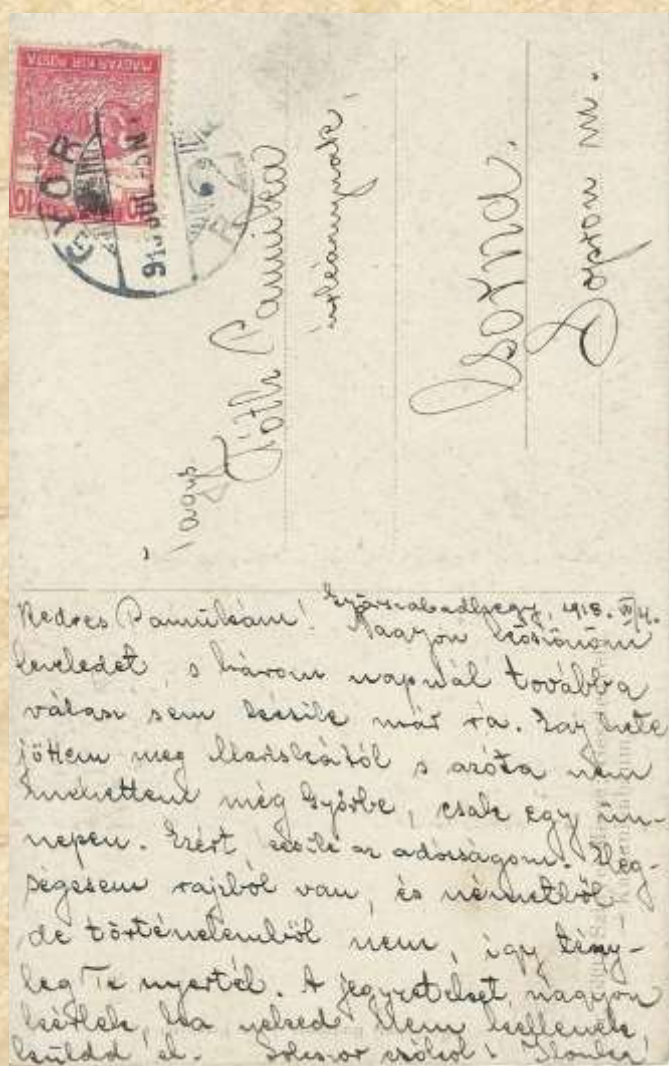 MAGYAR KIR. POSTA
10
GYŐR
Nagys
Tóth Pannika
úrleánynak,
Csorna.
Sopron m.
Kedves Pannikám! Győrszabadhegy, 1918. VII/4.
Nagyon köszönöm
leveledet, s három napnál továbba
válasz sem késik már rá. Egy hete
jöttem meg Mariskától s azóta nem
mehettem még Győrbe, csak egy ün-
nepen. Ezért késik az adósságom. Elég-
ségesem rajzból van, és németből
de történelemből nem, így tény-
leg Te nyertél. A jegyzeteket, nagyon
kérlek, ha neked nem kellenek,
küldd el. Sokszor csókol! Ilonka!